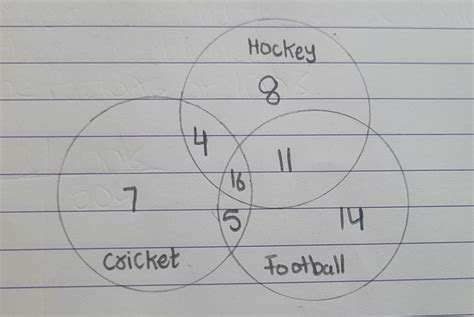 Hockey
8
4
16
11
7
5
14
Cricket
Football